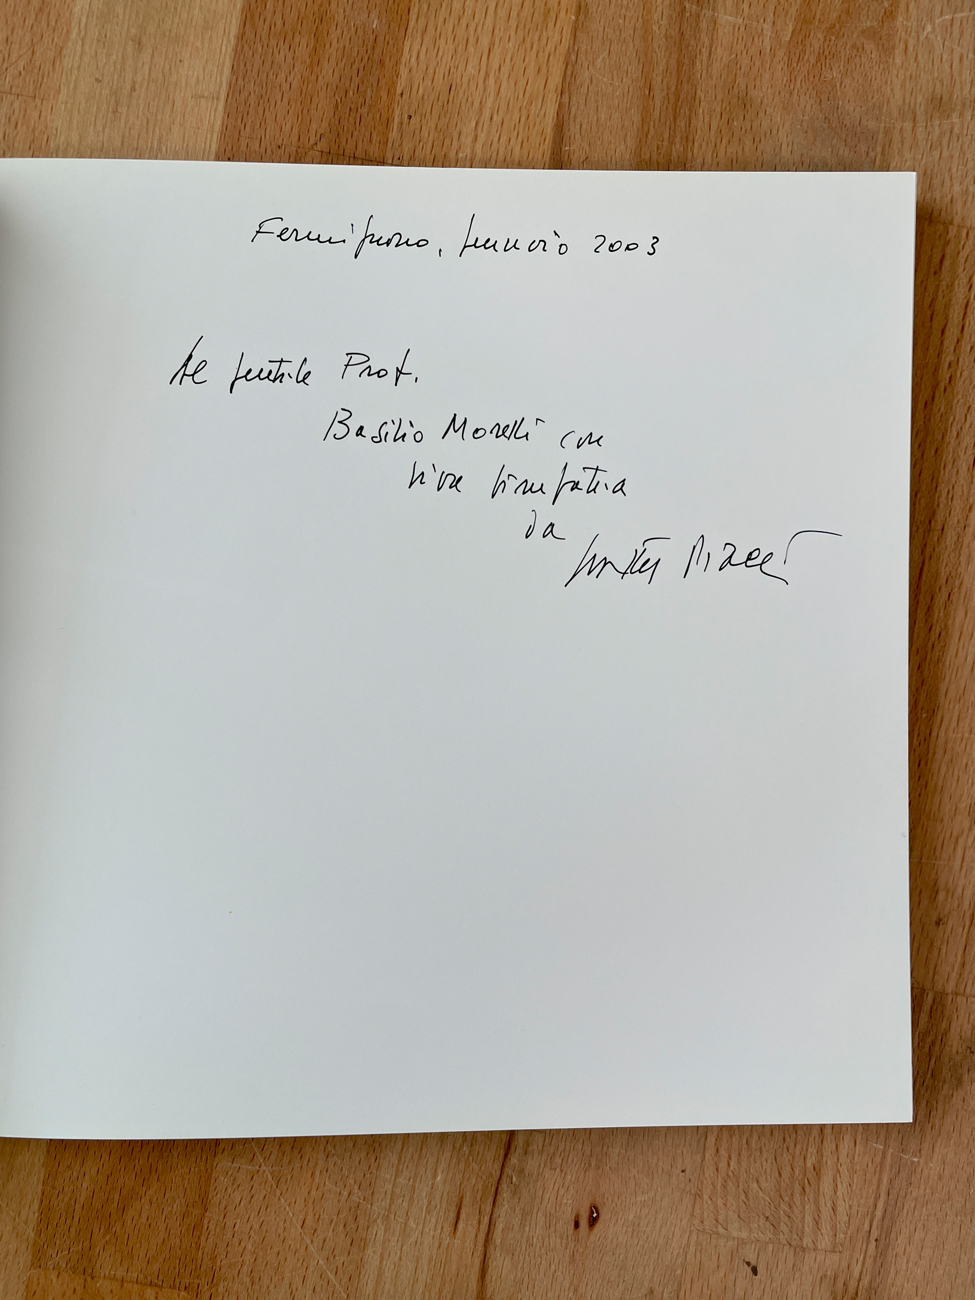 Fermignano, gennaio 2003
Al gentile Prof.
Basilio Morelli con
viva simpatia
da